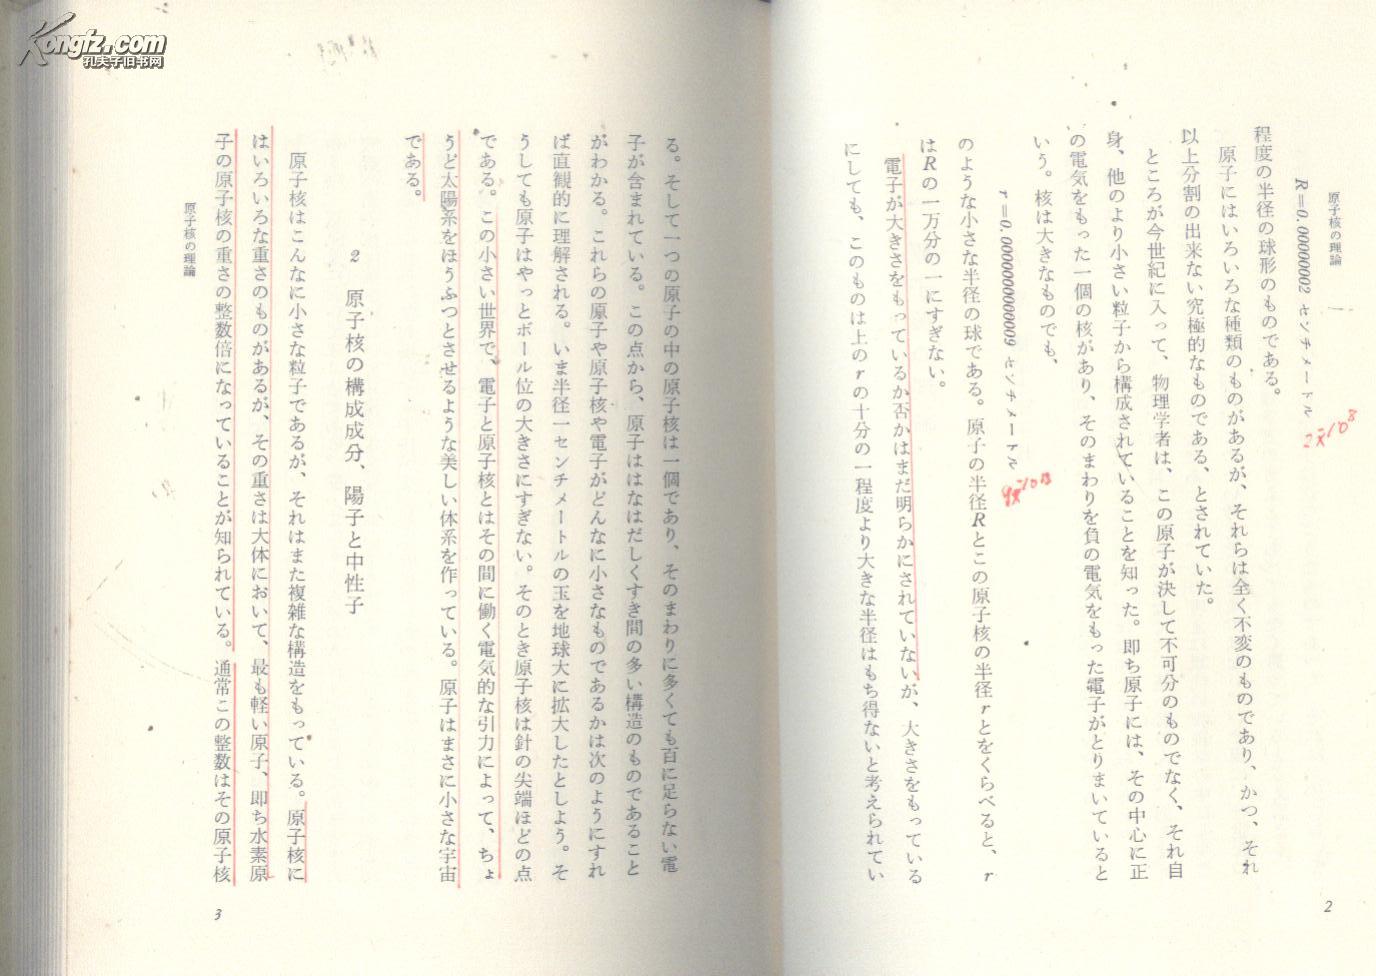 Kongfz.com
孔夫子旧书网
原子核の理論
R＝0.00000002 センチメートル
程度の半径の球形のものである。
原子にはいろいろな種類のものがあるが、それらは全く不変のものであり、かつ、それ
以上分割の出来ない究極的なものである、とされていた。
ところが今世紀に入って、物理学者は、この原子が決して不可分のものでなく、それ自
身、他のより小さい粒子から構成されていることを知った。即ち原子には、その中心に正
の電気をもった一個の核があり、そのまわりを負の電気をもった電子がとりまいていると
いう。核は大きなものでも、
r＝0.0000000000009 センチメートル
のような小さな半径の球である。原子の半径Rとこの原子核の半径rとをくらべると、r
はRの一万分の一にすぎない。
電子が大きさをもっているか否かはまだ明らかにされていないが、大きさをもっている
にしても、このものは上のrの十分の一程度より大きな半径はもち得ないと考えられてい
2
る。そして一つの原子の中の原子核は一個であり、そのまわりに多くても百に足らない電
子が含まれている。この点から、原子ははなはだしくすき間の多い構造のものであること
がわかる。これらの原子や原子核や電子がどんなに小さなものであるかは次のようにすれ
ば直観的に理解される。いま半径一センチメートルの玉を地球大に拡大したとしよう。そ
うしても原子はやっとボール位の大きさにすぎない。そのとき原子核は針の尖端ほどの点
である。この小さい世界で、電子と原子核とはその間に働く電気的な引力によって、ちょ
うど太陽系をほうふつとさせるような美しい体系を作っている。原子はまさに小さな宇宙
である。
2 原子核の構成成分、陽子と中性子
原子核はこんなに小さな粒子であるが、それはまた複雑な構造をもっている。原子核に
はいろいろな重さのものがあるが、その重さは大体において、最も軽い原子、即ち水素原
子の原子核の重さの整数倍になっていることが知られている。通常この整数はその原子核
原子核の理論
3